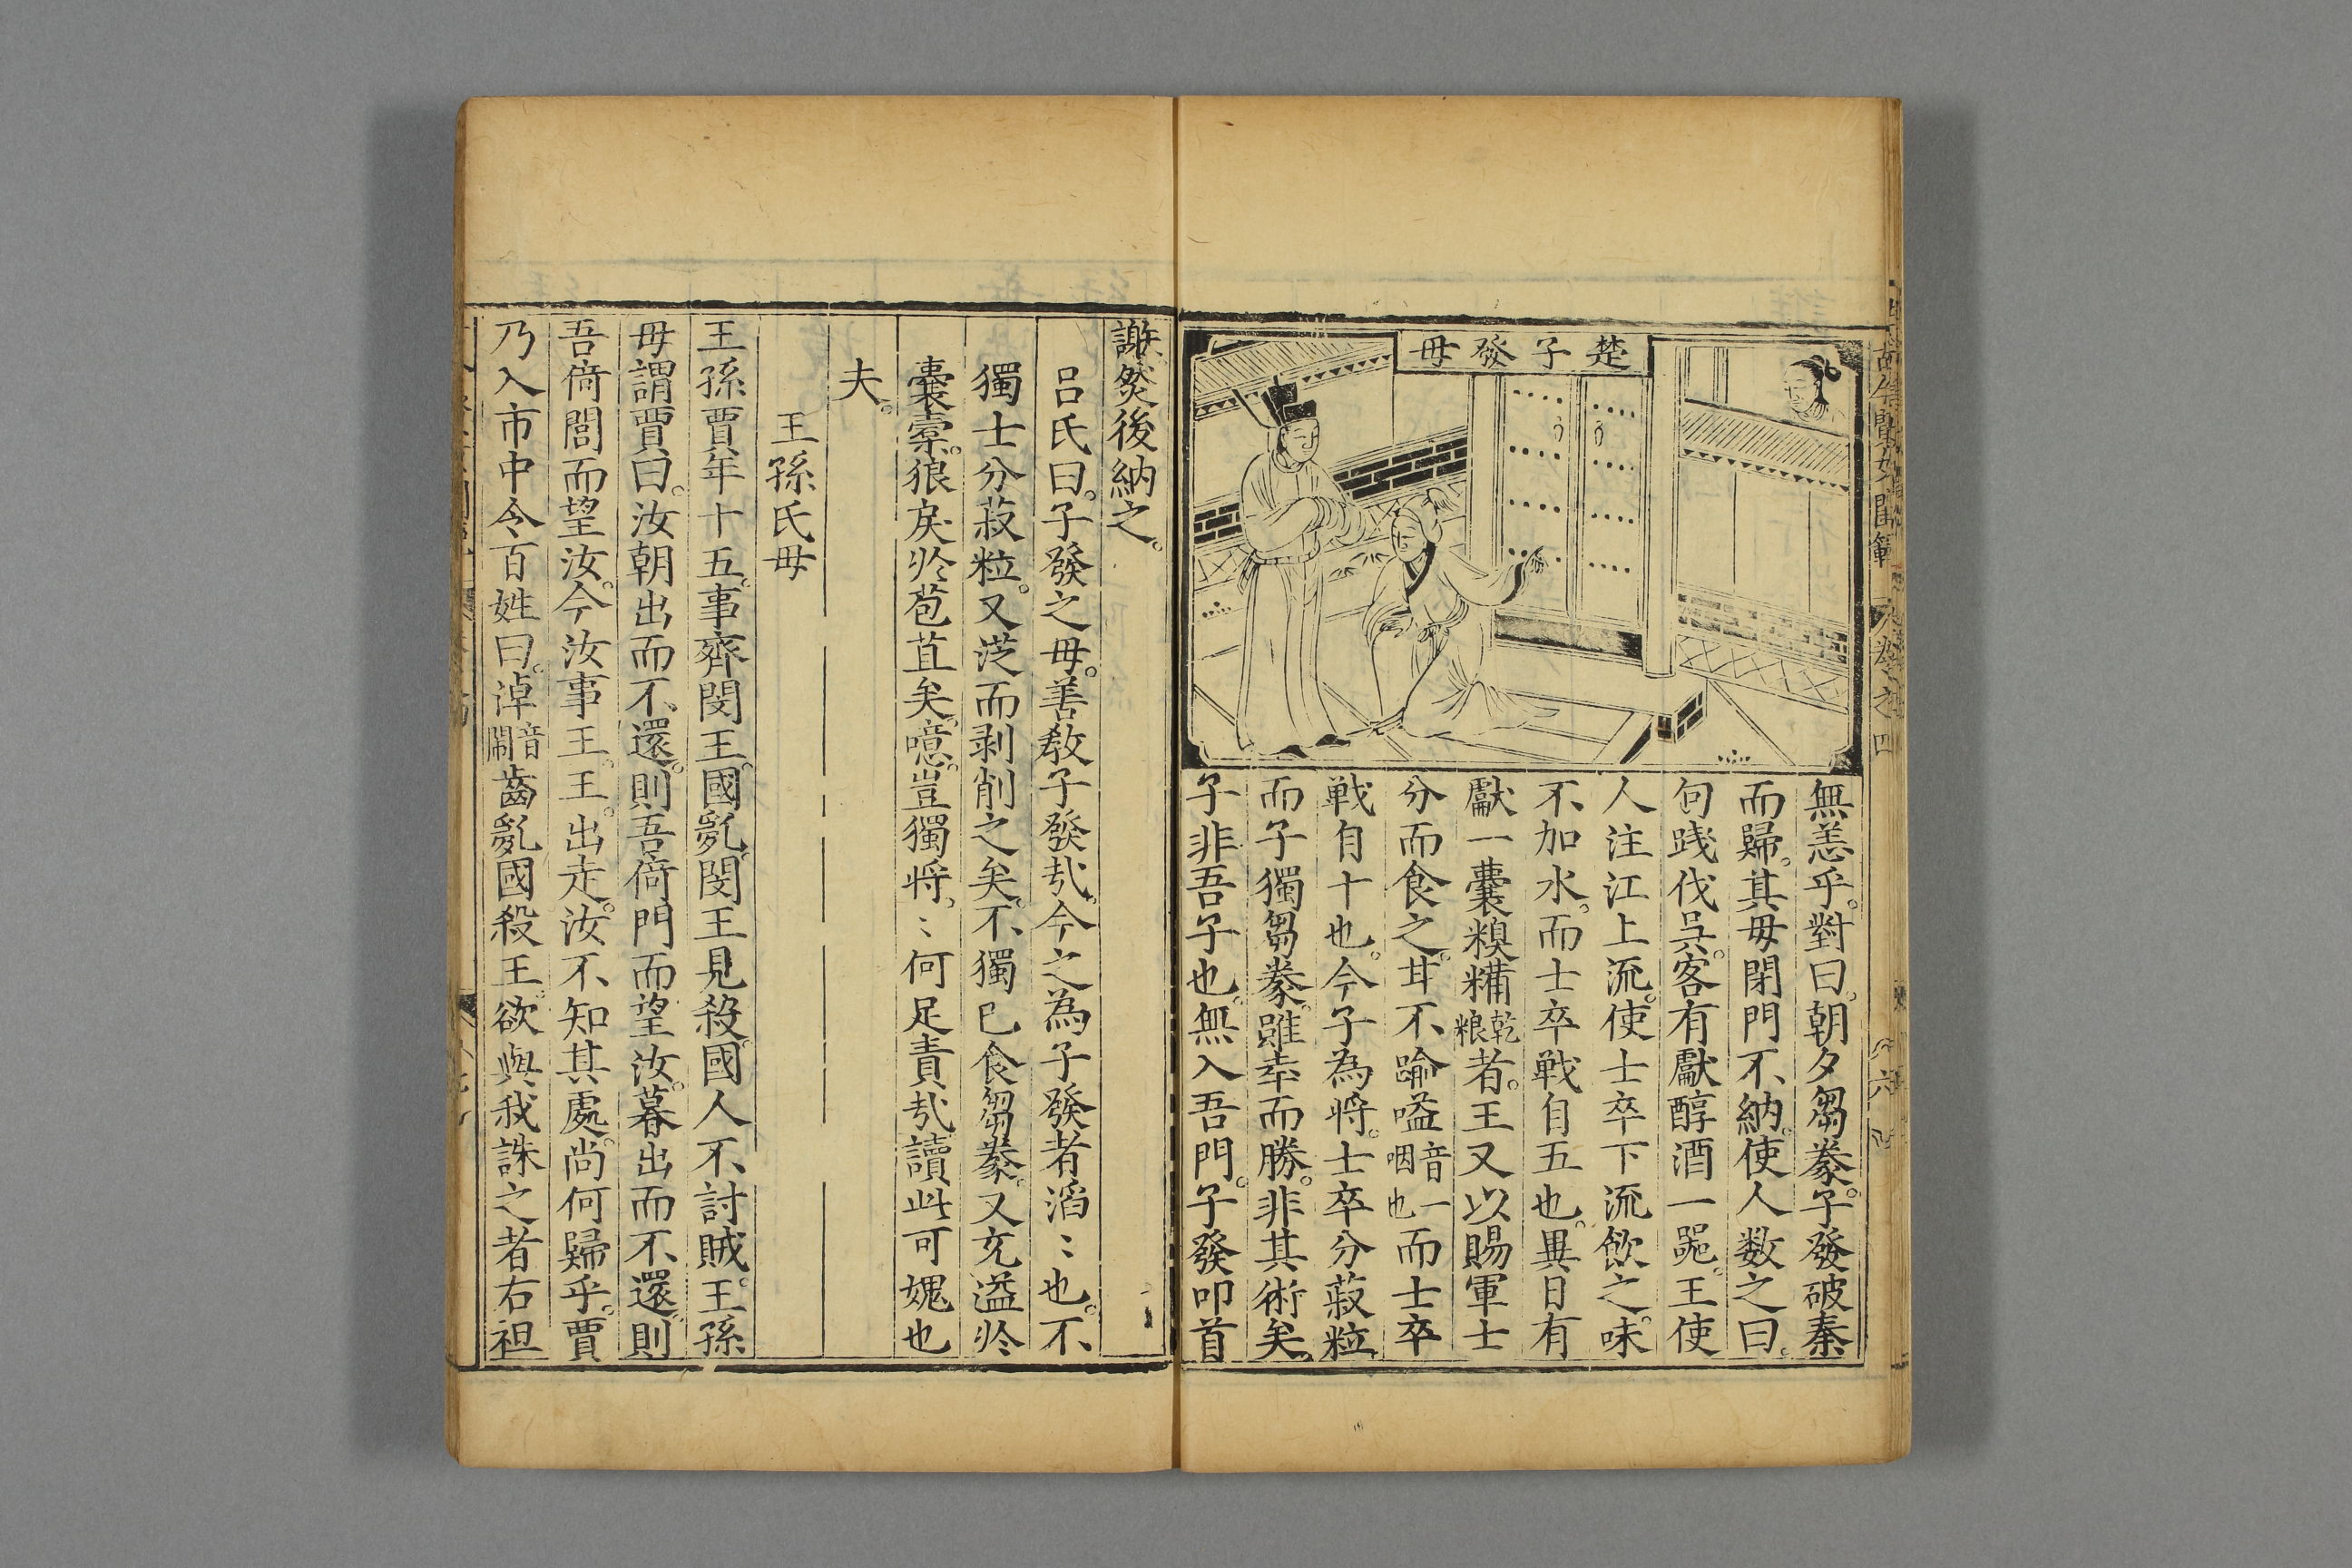 楚子發母
無恙乎。對曰。朝夕芻豢。子發破秦
而歸。其母閉門不納。使人数之曰。
句踐伐吳。客有獻醇酒一噐。王使
人注江上流。使士卒下流飲之。味
不加水。而士卒戦自五也。異日有
獻一囊糗糒乾粮者。王又以賜軍士
分而食之。甘不踰嗌音一咽也而士卒
戦自十也。今子為將。士卒分菽粒
而子獨芻豢。雖幸而勝。非其術矣。
子非吾子也。無入吾門。子發叩首
謝。然後納之。
呂氏曰。子發之母。善教子發㢤。今之為子發者滔〻也。不
獨士分菽粒。又從而剥削之矣。不獨已食芻豢。又充溢扵
囊橐。狼戾扵苞苴矣。噫。豈獨將。〻何足責㢤。讀此可媿也
夫。
王孫氏母
王孫賈年十五。事齊閔王。國亂。閔王見殺。國人不討賊。王孫
母謂賈曰。汝朝出而不還。則吾倚門而望汝。暮出而不還。則
吾倚閭而望汝。今汝事王。王出走。汝不知其處。尚何歸乎。賈
乃入市中令百姓曰。淖音閙齒亂國殺王。欲與我誅之者右袒